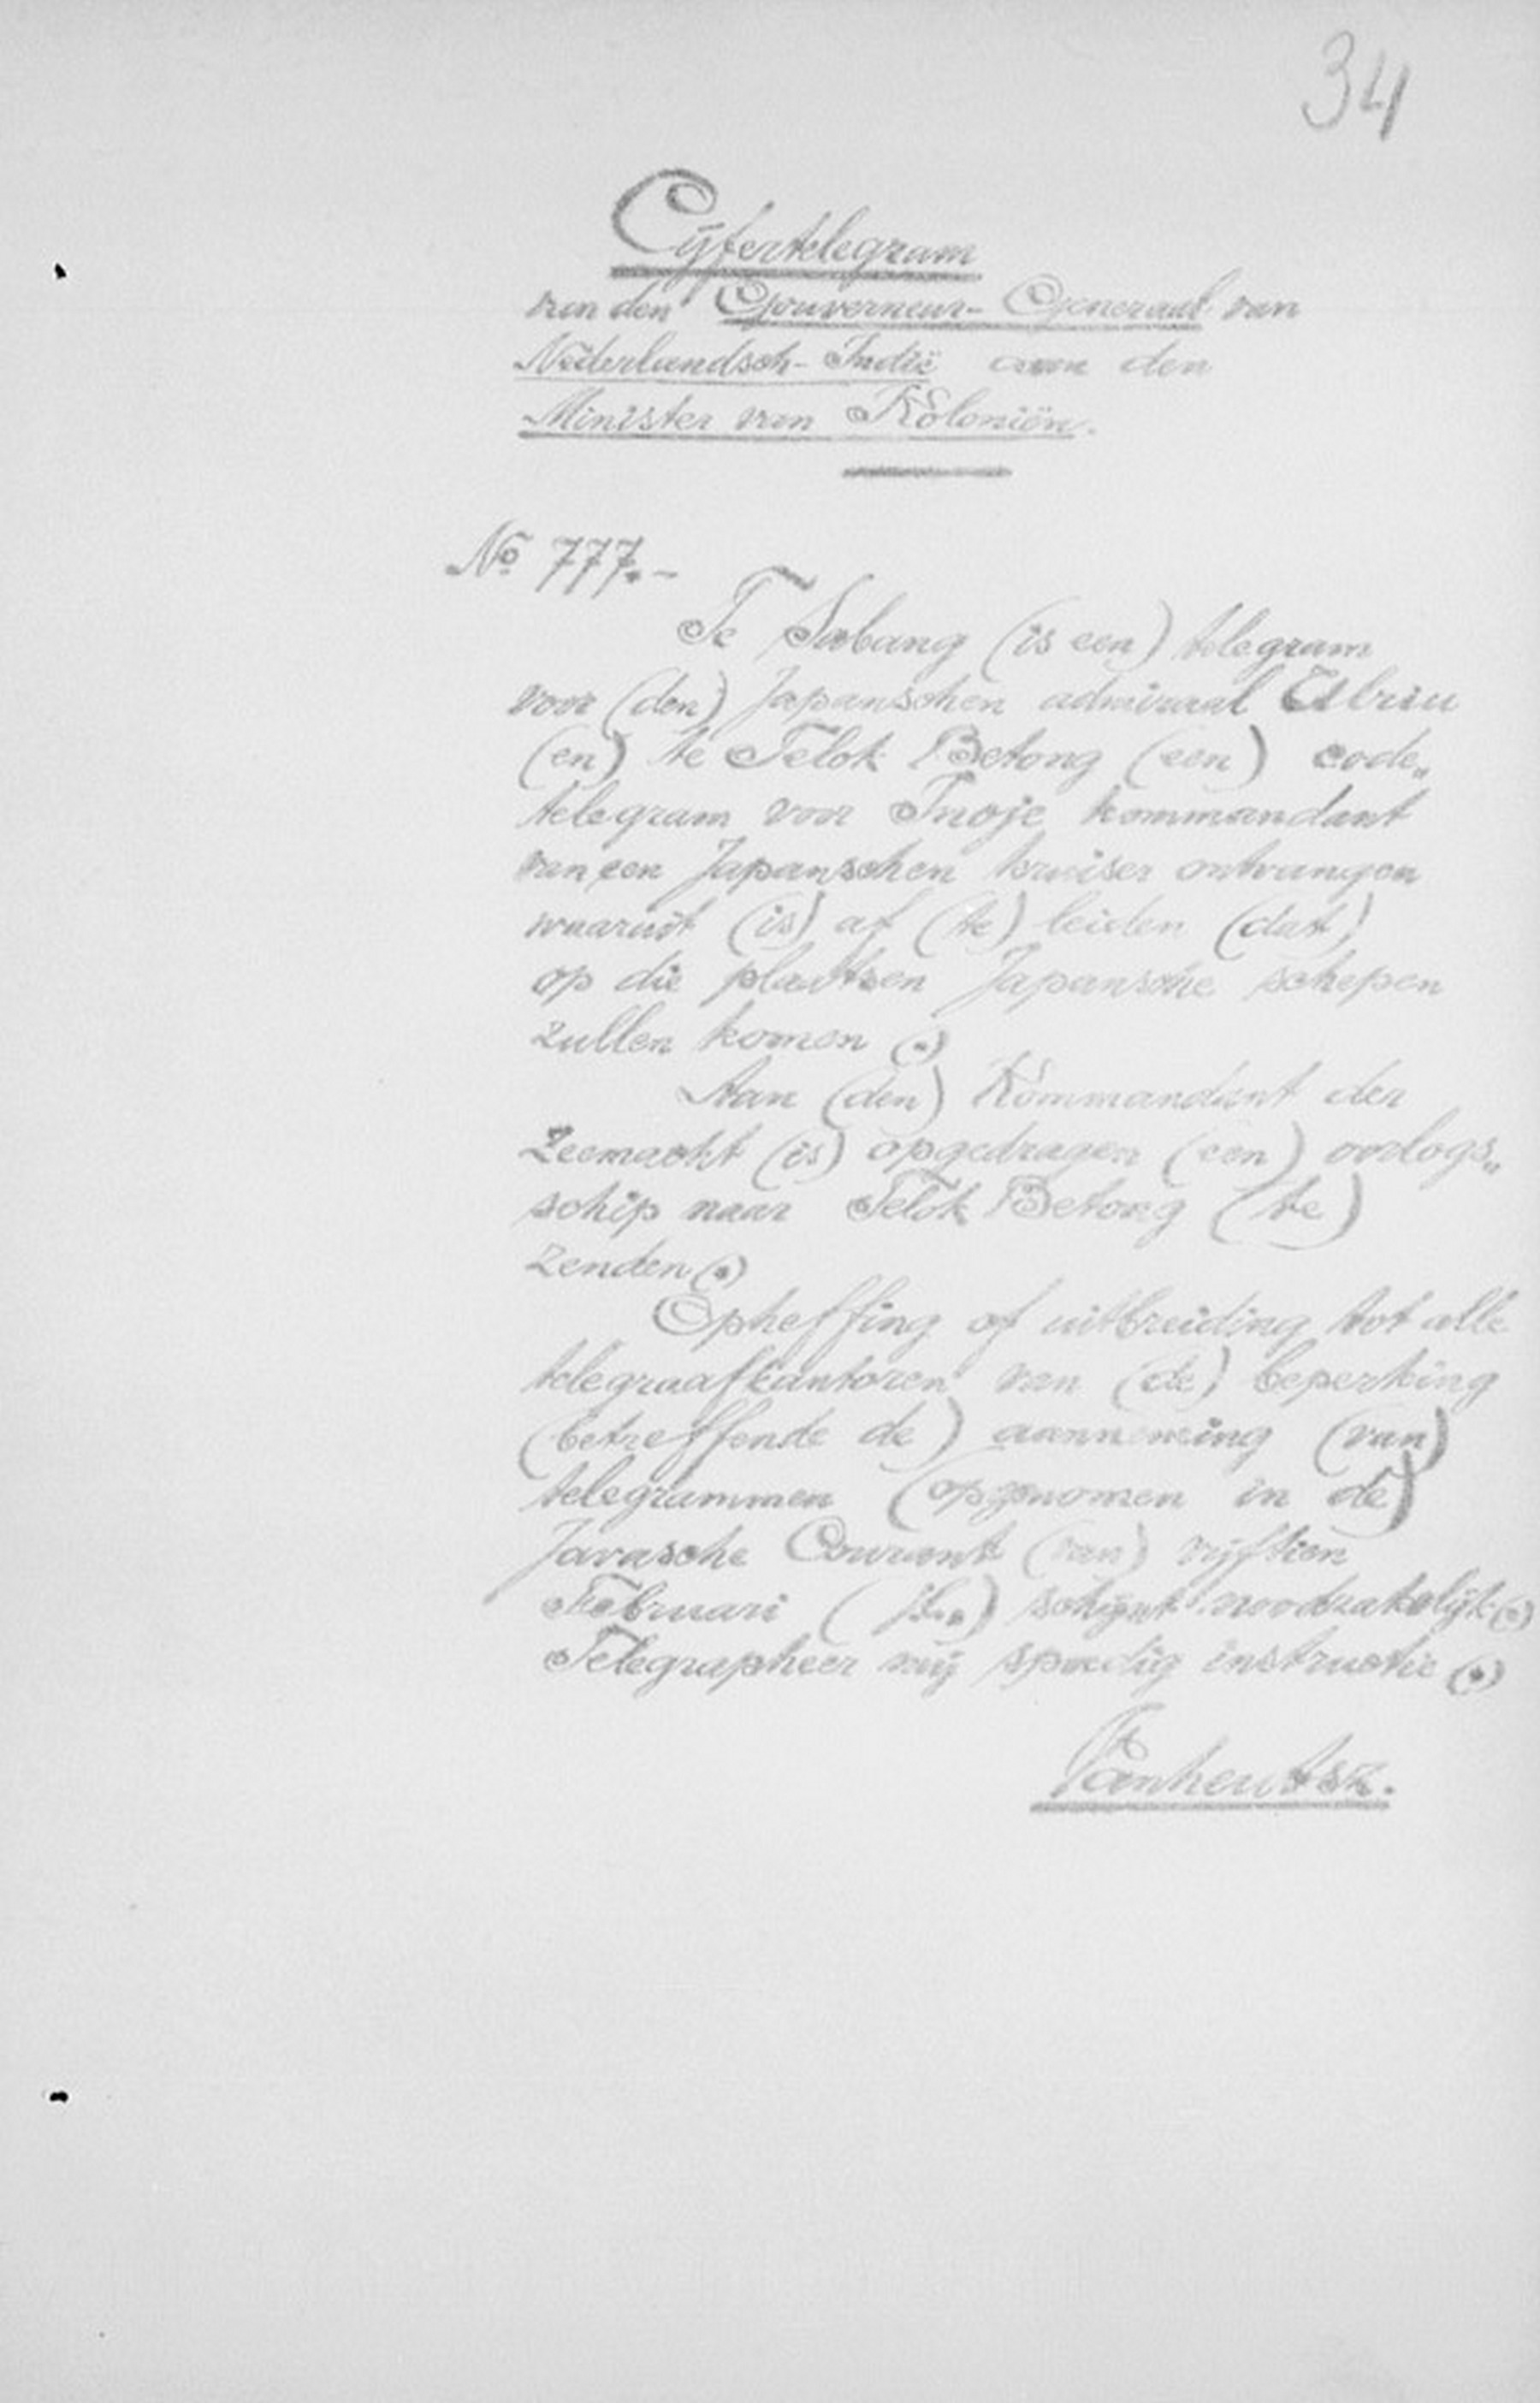 34
Cijfertelegram
van den Gouverneur-Generaal van
Nederlandsch-Indië aan den
Minister van Koloniën.
No 777.-
Te Sabang (is een) telegram
voor (den) Japanschen admiraal Uriu
(en) te Telok Betong (een) code„
telegram voor Inoje kommandant
van een Japanschen kruiser ontvangen
waaruit (is) af (te) leiden (dat)
op die plaatsen Japansche schepen
zullen komen (.)
Aan (den) Kommandant der
Zeemacht (is) opgedragen (een) oorlogs„
schip naar Telok Betong (te)
zenden (.)
Opheffing of uitbreiding tot alle
telegraafkantoren van (de) beperking
(betreffende de) aanneming (van)
telegrammen (opgenomen in de)
Javasche Courant (van) vijftien
Februari (jl.) schijnt noodzakelijk (.)
Telegrapheer mij spoedig instructie (.)
Vanheutsz.